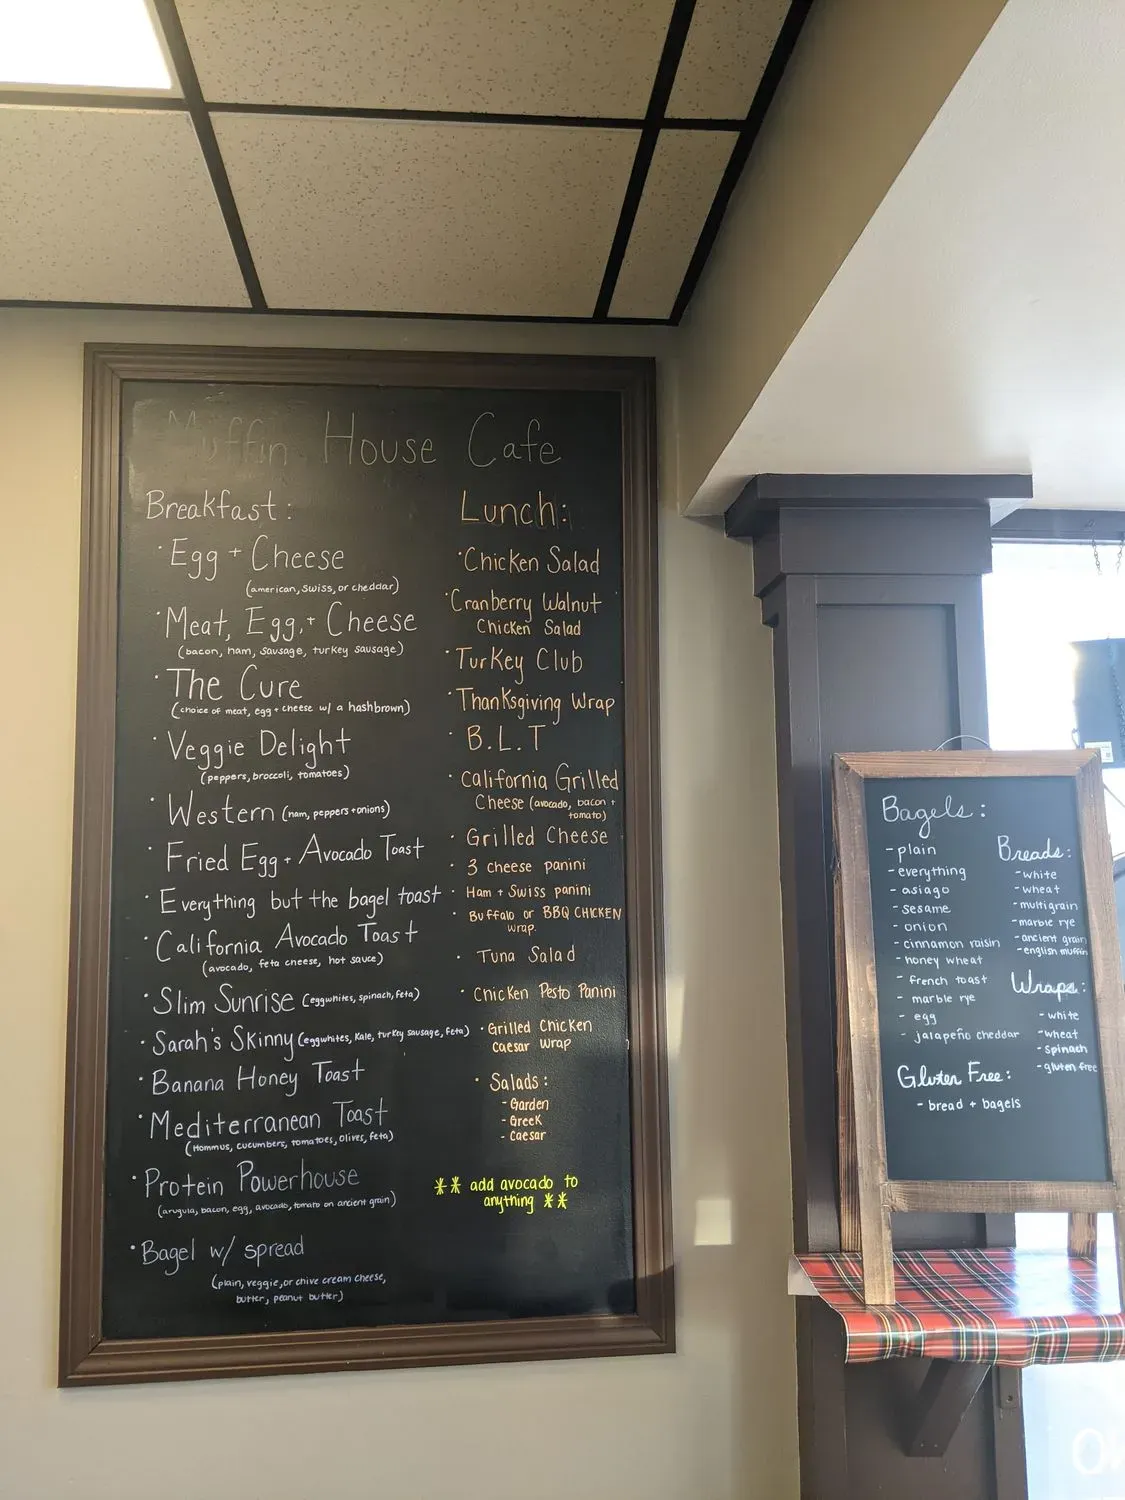 Muffin House Cafe
Breakfast:
· Egg + Cheese
(american, swiss, or cheddar)
· Meat, Egg, + Cheese
(bacon, ham, sausage, turkey sausage)
· The Cure
(choice of meat, egg + cheese w/ a hashbrown)
· Veggie Delight
(peppers, broccoli, tomatoes)
· Western (ham, peppers + onions)
· Fried Egg + Avocado Toast
· Everything but the bagel toast
· California Avocado Toast
(avocado, feta cheese, hot sauce)
· Slim Sunrise (eggwhites, spinach, feta)
· Sarah's Skinny (eggwhites, Kale, turkey sausage, feta)
· Banana Honey Toast
· Mediterranean Toast
(Hommus, cucumbers, tomatoes, olives, feta)
· Protein Powerhouse
(arugula, bacon, egg, avocado, tomato on ancient grain)
· Bagel w/ spread
(plain, veggie, or chive cream cheese,
butter, peanut butter)
Lunch:
· Chicken Salad
· Cranberry Walnut
Chicken Salad
· Turkey Club
· Thanksgiving Wrap
· B.L.T
· California Grilled
Cheese (avocado, bacon +
tomato)
· Grilled Cheese
· 3 cheese panini
· Ham + Swiss panini
· Buffalo or BBQ CHICKEN
wrap.
· Tuna Salad
· Chicken Pesto Panini
· Grilled Chicken
caesar wrap
· Salads:
- Garden
- Greek
- Caesar
** add avocado to
anything **
Bagels:
- plain
- everything
- asiago
- sesame
- onion
- cinnamon raisin
- honey wheat
- french toast
- marble rye
- egg
- jalapeño cheddar
Gluten Free:
- bread + bagels
Breads:
- white
- wheat
- multigrain
- marble rye
- ancient grain
- english muffin
Wraps:
- white
- wheat
- spinach
- gluten free